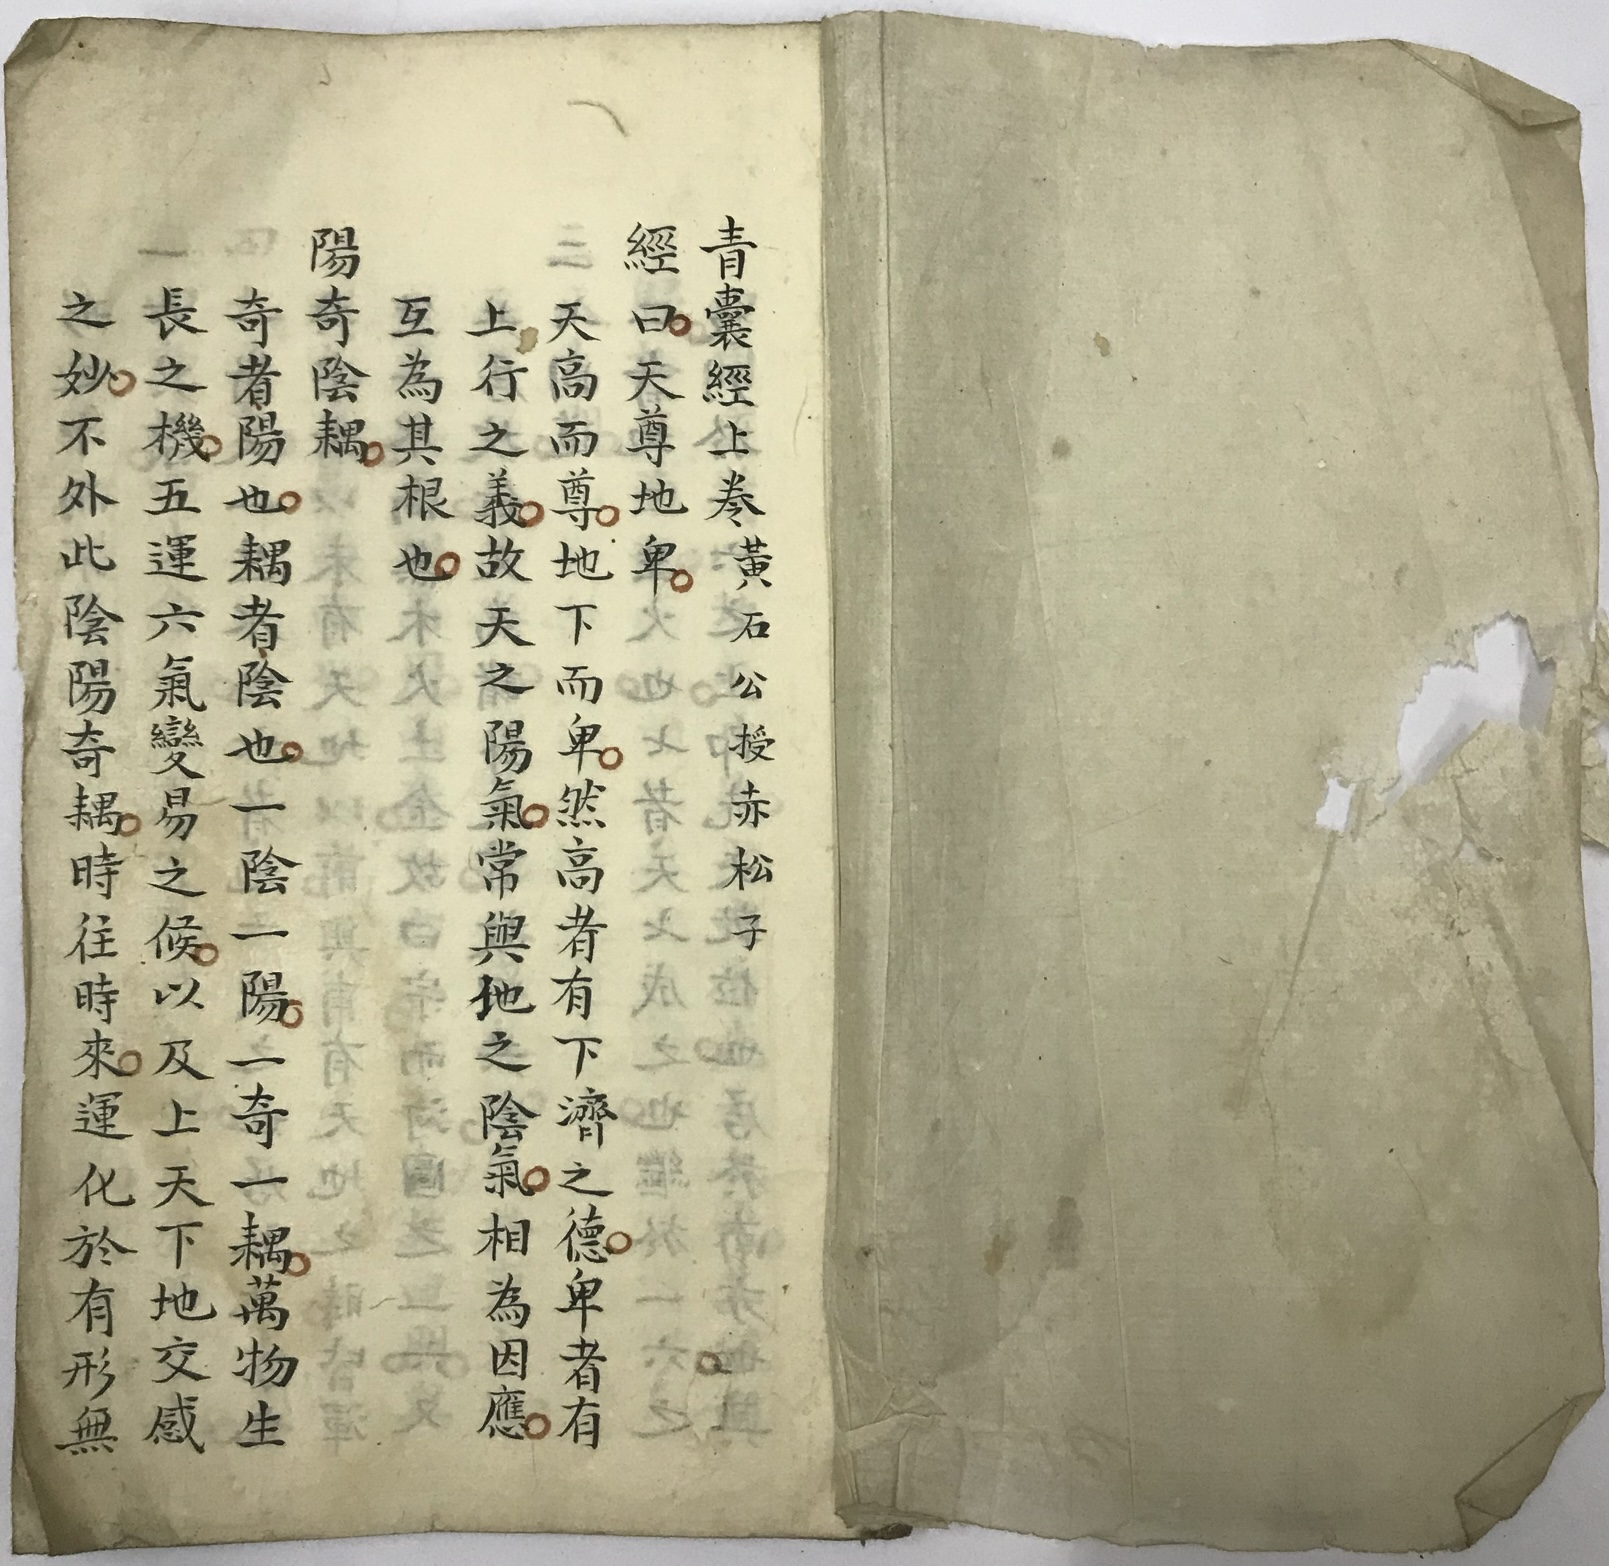 青囊經上卷黃石公授赤松子
經曰天尊地卑
天高而尊地下而卑然高者有下濟之德卑者有
上行之義故天之陽氣常與地之陰氣相為因應
互為其根也
陽奇陰耦
奇者陽也耦者陰也一陰一陽一奇一耦萬物生
長之機五運六氣變易之候以及上天下地交感
之妙不外此陰陽奇耦時往時來運化於有形無